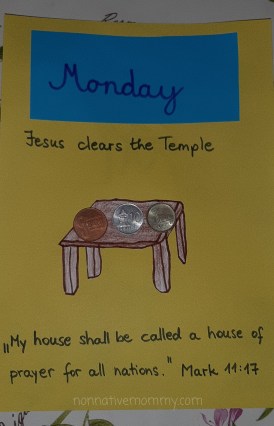 Monday
Jesus clears the Temple
„My house shall be called a house of
prayer for all nations." Mark 11:17
nonnativemommy.com